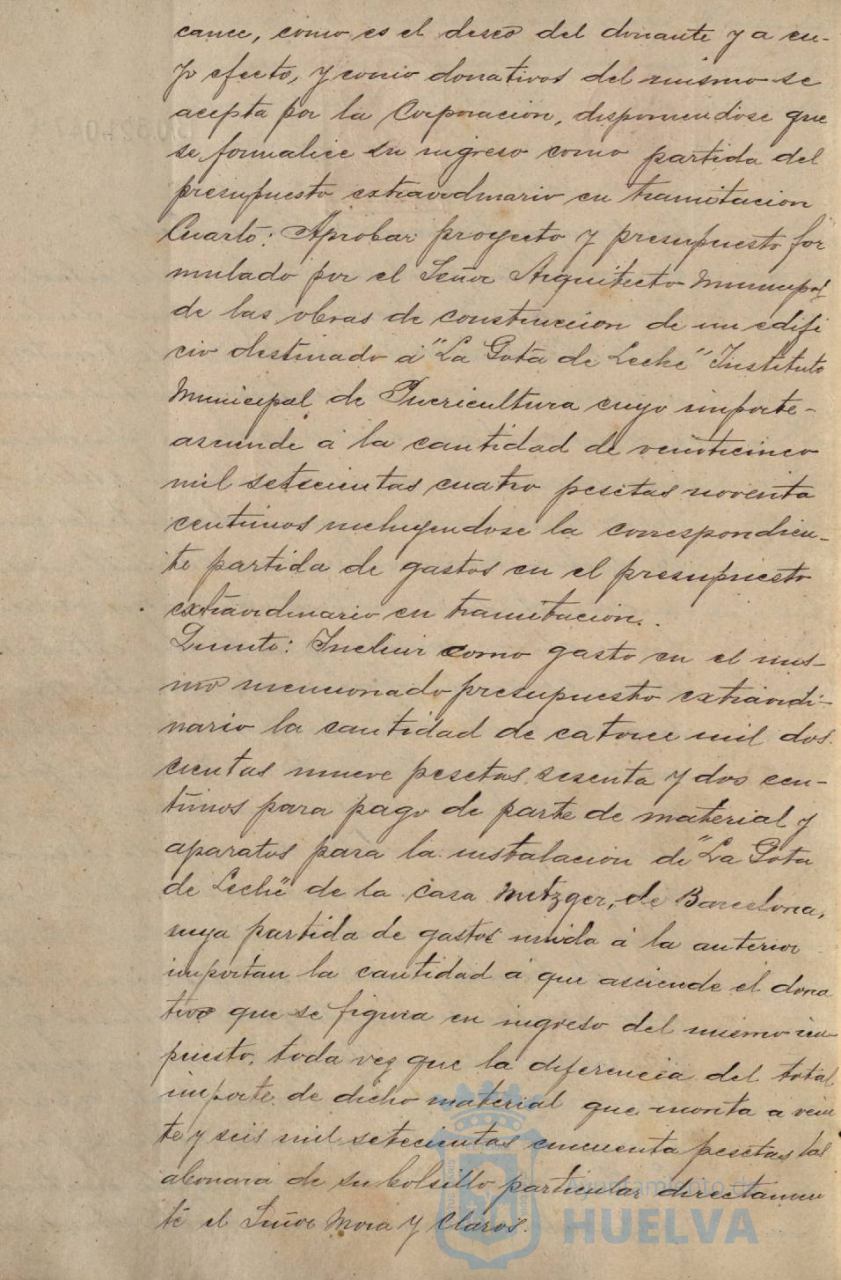 cance, como es el deseo del donante y a cu-
yo efecto, y como donativos del mismo se
acepta por la Corporacion, disponiendose que
se formalice su ingreso como partida del
presupuesto extraordinario en tramitacion
Cuarto: Aprobar proyecto y presupuesto for
mulado por el Señor Arquitecto Municipal
de las obras de construccion de un edifi
cio destinado á "La Gota de Leche" Instituto
Municipal de Puericultura cuyo importe-
asciende á la cantidad de veinticinco
mil setecientas cuatro pesetas noventa
centimos incluyendose la correspondien-
te partida de gastos en el presupuesto
extraordinario en tramitacion.
Quinto: Incluir como gasto en el mis-
mo mencionado presupuesto extraordi-
nario la cantidad de catorce mil dos
cientas nueve pesetas sesenta y dos cen-
timos para pago de parte de material y
aparatos para la instalacion de "La Gota
de Leche" de la casa Metzger, de Barcelona,
cuya partida de gastos unida á la anterior
importan la cantidad á que asciende el dona
tivo que se figura en ingreso del mismo
puesto, toda vez que la diferencia del total
importe de dicho material que monta a vein
te y seis mil setecientas cincuenta pesetas las
abonara de su bolsillo particular directamen
te el Señor Mora y Claros.
Ayuntamiento de
HUELVA